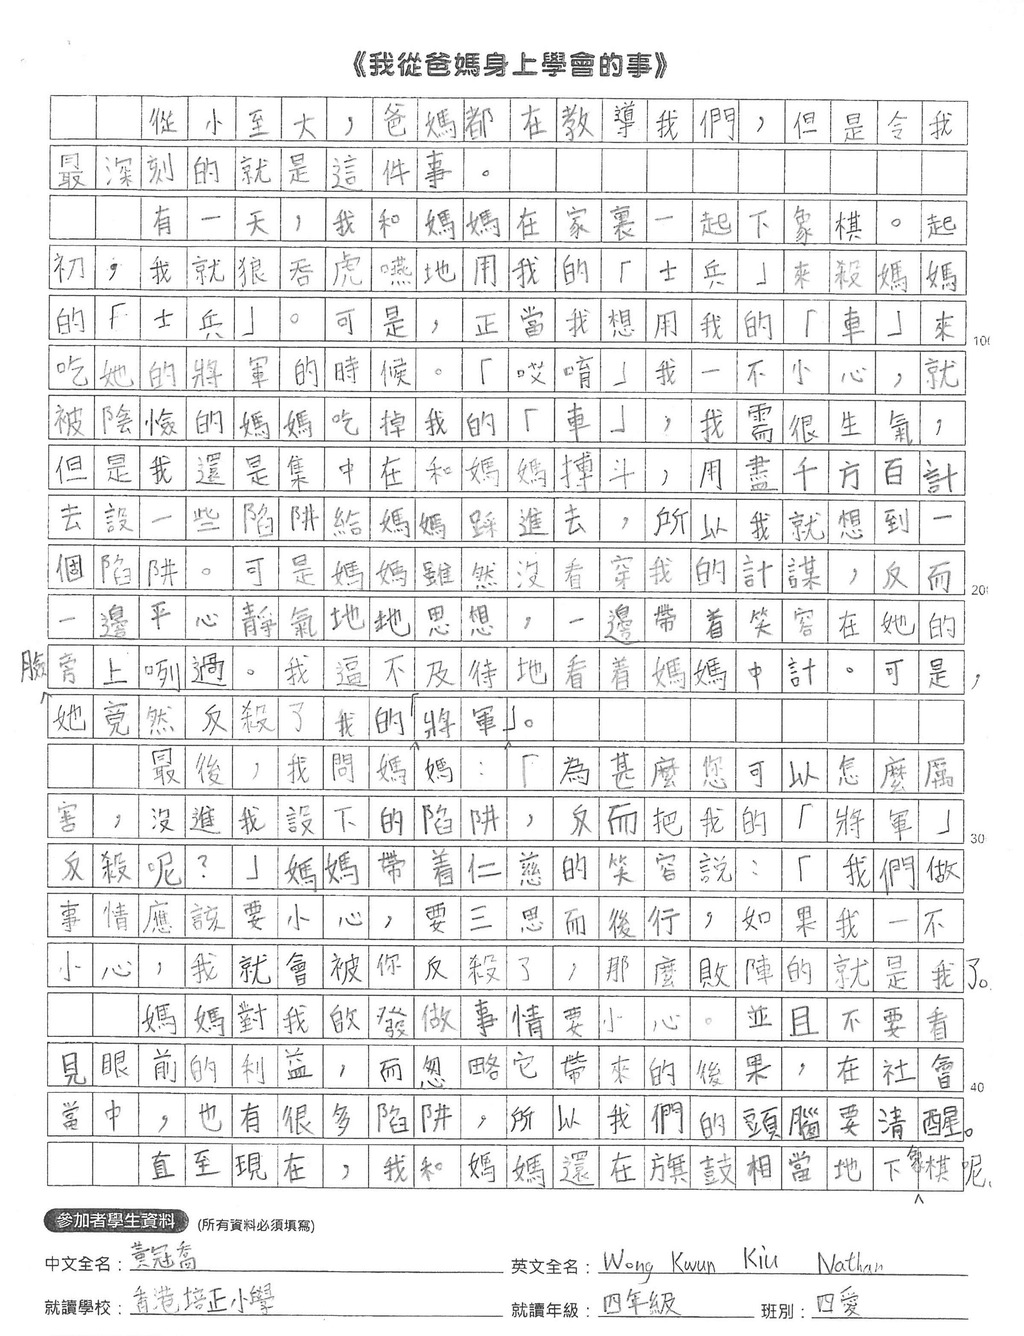 《我從爸媽身上學會的事》
從小至大，爸媽都在教導我們，但是令我
最深刻的就是這件事。
有一天，我和媽媽在家裏一起下象棋。起
初，我就狼吞虎嚥地用我的「士兵」來殺媽媽
的「士兵」。可是，正當我想用我的「車」來
100
吃她的將軍的時候。「哎唷」我一不小心，就
被陰險的媽媽吃掉我的「車」，我需很生氣，
但是我還是集中在和媽媽搏斗，用盡千方百計
去設一些陷阱給媽媽踩進去，所以我就想到一
個陷阱。可是媽媽雖然沒看穿我的計謀，反而
200
一邊平心靜氣地地思想，一邊帶着笑容在她的
臉旁上咧過。我逼不及待地看着媽媽中計。可是，
她竟然反殺了我的「將軍」。
最後，我問媽媽：「為甚麼您可以怎麼厲
害，沒進我設下的陷阱，反而把我的「將軍」
30
反殺呢？」媽媽帶着仁慈的笑容説：「我們做
事情應該要小心，要三思而後行，如果我一不
小心，我就會被你反殺了，那麼敗陣的就是我了。
媽媽對我啟發做事情要小心。並且不要看
見眼前的利益，而忽略它帶來的後果，在社會
40
當中，也有很多陷阱，所以我們的頭腦要清醒。
直至現在，我和媽媽還在旗鼓相當地下象棋呢。
參加者學生資料 (所有資料必須填寫)
中文全名：黃冠喬 英文全名：Wong Kwun Kiu Nathan
就讀學校：香港培正小學 就讀年級：四年級 班別：四愛